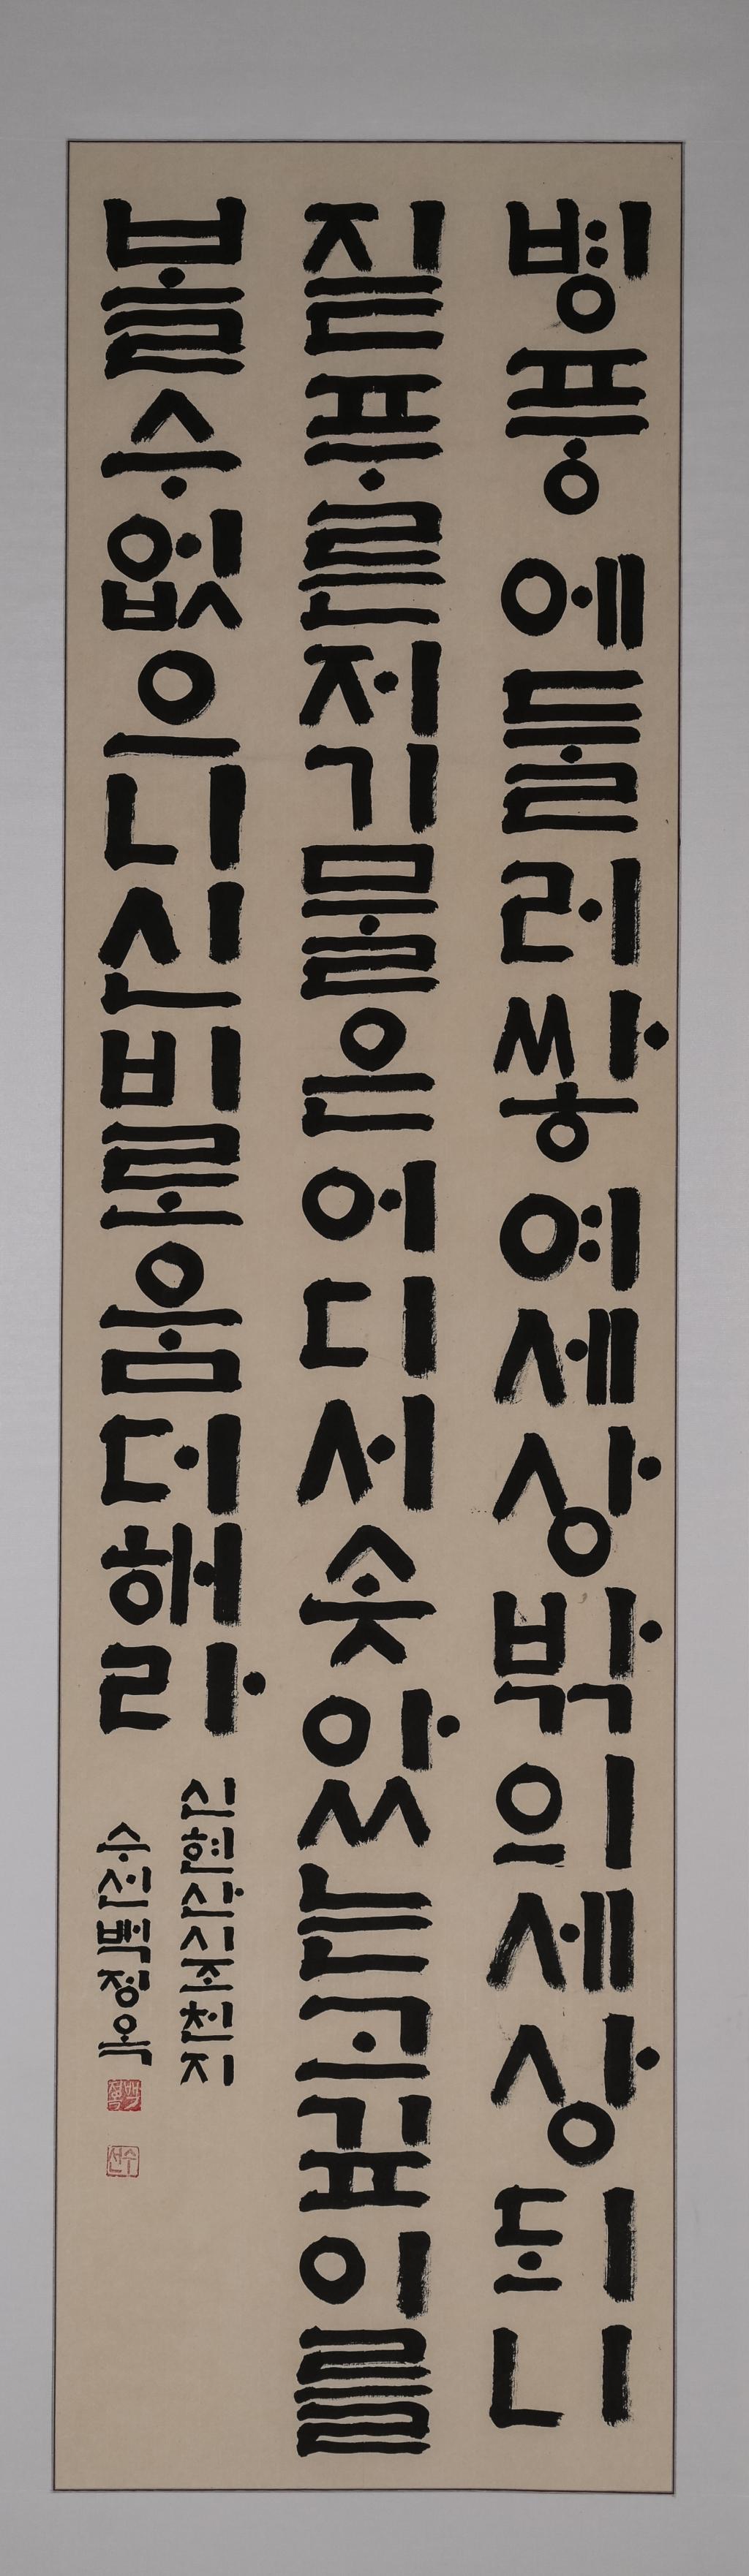 병풍에둘러쌓여세상밖의세상되니
짙푸른저기물은어디서솟았는고깊이를
볼수없으니신비로움더해라
신현산시조천지
수선백정옥
수선